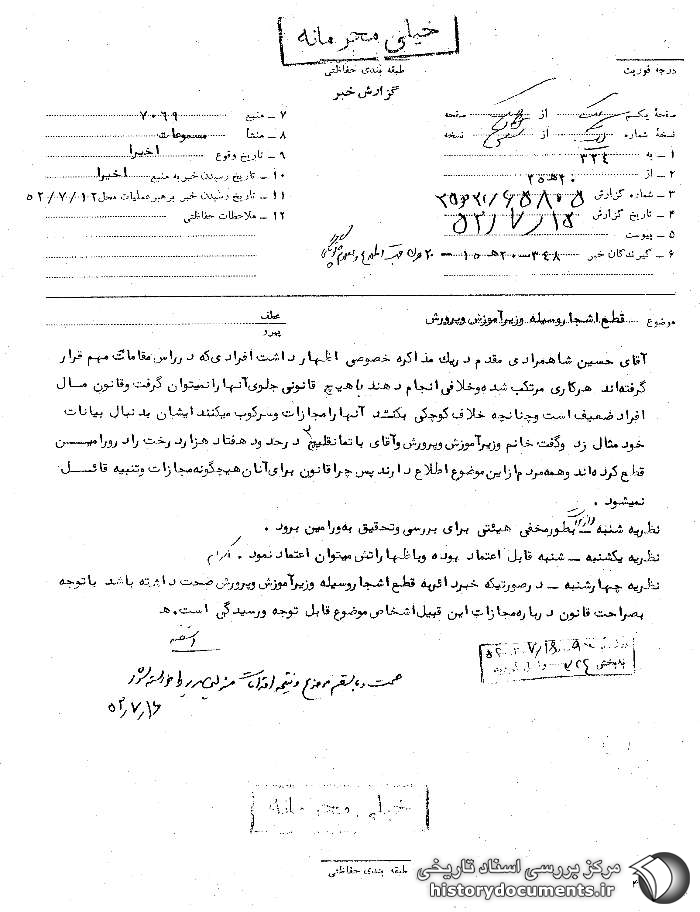 خیلی محرمانه
طبقه بندی حفاظتی
درجه فوریت
گزارش خبر
صفحه یکم از صفحه
نسخه شماره از نسخه
۱ - به ۳۳۴
۲ - از ۲۰ هـ ۲۵
۳ - شماره گزارش
۴ - تاریخ گزارش ۵۲/۷/۱۵
۵ - پیوست
۶ - گیرندگان خبر
۷ - منبع ۷۰۶۹
۸ - منشأ مسموعات
۹ - تاریخ وقوع اخیرا
۱۰ - تاریخ رسیدن خبر به منبع اخیرا
۱۱ - تاریخ رسیدن خبر برهبر عملیات محل ۵۲/۷/۱۲
۱۲ - ملاحظات حفاظتی
موضوع قطع اشجار وسیله وزیر آموزش و پرورش
عطف
پیرو
آقای حسین شاهمرادی مقدم در یک مذاکره خصوصی اظهار داشت افرادی که در راس مقامات مهم قرار
گرفته اند هرکاری مرتکب شده و خلافی انجام دهند با هیچ قانونی جلوی آنها را نمیتوان گرفت و قانون مال
افراد ضعیف است و چنانچه خلاف کوچکی بکنند آنها را مجازات و سرکوب میکنند ایشان بدنبال بیانات
خود مثال زد و گفت خانم وزیر آموزش و پرورش و آقای باتمانقلیچ در حدود هفتاد هزار درخت را در ورامین
قطع کرده اند و همه مردم از این موضوع اطلاع دارند پس چرا قانون برای آنان هیچگونه مجازات و تنبیه قائل
نمیشود .
نظریه شنبه - بطور مخفی هیئتی برای بررسی و تحقیق به ورامین برود .
نظریه یکشنبه - شنبه قابل اعتماد بوده و باظهاراتش میتوان اعتماد نمود .
نظریه چهارشنبه - در صورتیکه خبر دائر به قطع اشجار وسیله وزیر آموزش و پرورش صحت داشته باشد با توجه
بصراحت قانون درباره مجازات این قبیل اشخاص موضوع قابل توجه و رسیدگی است . هـ
۵۲/۷/۱۶
خیلی محرمانه
طبقه بندی حفاظتی
مرکز بررسی اسناد تاریخی
historydocuments.ir